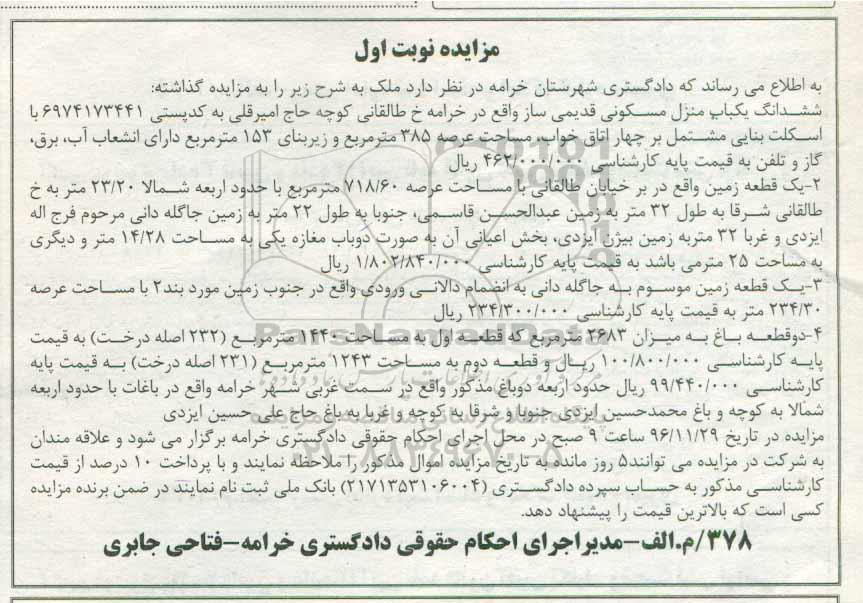 مزایده نوبت اول
به اطلاع می رساند که دادگستری شهرستان خرامه در نظر دارد ملک به شرح زیر را به مزایده گذاشته:
ششدانگ یکباب منزل مسکونی قدیمی ساز واقع در خرامه خ طالقانی کوچه حاج امیرقلی به کدپستی ۶۹۷۴۱۷۳۴۴۱ با
اسکلت بنایی مشتمل بر چهار اتاق خواب، مساحت عرصه ۳۸۵ مترمربع و زیربنای ۱۵۳ مترمربع دارای انشعاب آب، برق،
گاز و تلفن به قیمت پایه کارشناسی ۴۶۲/۰۰۰/۰۰۰ ریال
۲-یک قطعه زمین واقع در بر خیابان طالقانی با مساحت عرصه ۷۱۸/۶۰ مترمربع با حدود اربعه شمالا ۲۳/۲۰ متر به خ
طالقانی شرقا به طول ۳۲ متر به زمین عبدالحسن قاسمی، جنوبا به طول ۲۲ متر به زمین جاگله دانی مرحوم فرج اله
ایزدی و غربا ۳۲ متربه زمین بیژن ایزدی، بخش اعیانی آن به صورت دوباب مغازه یکی به مساحت ۱۴/۲۸ متر و دیگری
به مساحت ۲۵ مترمی باشد به قیمت پایه کارشناسی ۱/۸۰۲/۸۴۰/۰۰۰ ریال
۳-یک قطعه زمین موسوم به جاگله دانی به انضمام دالانی ورودی واقع در جنوب زمین مورد بند۲ با مساحت عرصه
۲۳۴/۳۰ متر به قیمت پایه کارشناسی ۲۳۴/۳۰۰/۰۰۰ ریال
۴-دوقطعه باغ به میزان ۲۶۸۳ مترمربع که قطعه اول به مساحت ۱۴۴۰ مترمربع (۲۳۲ اصله درخت) به قیمت
پایه کارشناسی ۱۰۰/۸۰۰/۰۰۰ ریال و قطعه دوم به مساحت ۱۲۴۳ مترمربع (۲۳۱ اصله درخت) به قیمت پایه
کارشناسی ۹۹/۴۴۰/۰۰۰ ریال حدود اربعه دوباغ مذکور واقع در سمت غربی شهر خرامه واقع در باغات با حدود اربعه
شمالا به کوچه و باغ محمدحسین ایزدی جنوبا و شرقا به کوچه و غربا به باغ حاج علی حسین ایزدی
مزایده در تاریخ ۹۶/۱۱/۲۹ ساعت ۹ صبح در محل اجرای احکام حقوقی دادگستری خرامه برگزار می شود و علاقه مندان
به شرکت در مزایده می توانند۵ روز مانده به تاریخ مزایده اموال مذکور را ملاحظه نمایند و با پرداخت ۱۰ درصد از قیمت
کارشناسی مذکور به حساب سپرده دادگستری (۲۱۷۱۳۵۳۱۰۶۰۰۴) بانک ملی ثبت نام نمایند در ضمن برنده مزایده
کسی است که بالاترین قیمت را پیشنهاد دهد.
۳۷۸/م.الف-مدیراجرای احکام حقوقی دادگستری خرامه-فتاحی جابری
ParsNamadData